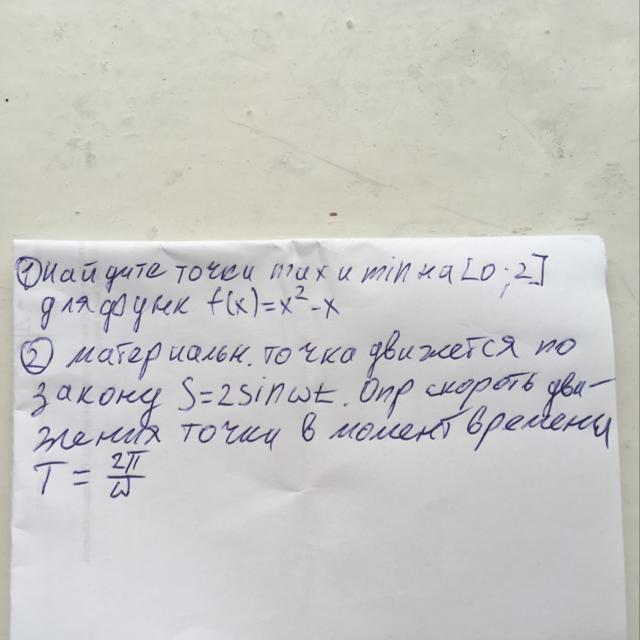 ① Найдите точки max и min на [0;2]
для функ f(x)=x²-x
② материальн. точка движется по
закону S=2sinωt. Опр скорость дви-
жения точки в момент времены
T = 2π/ω